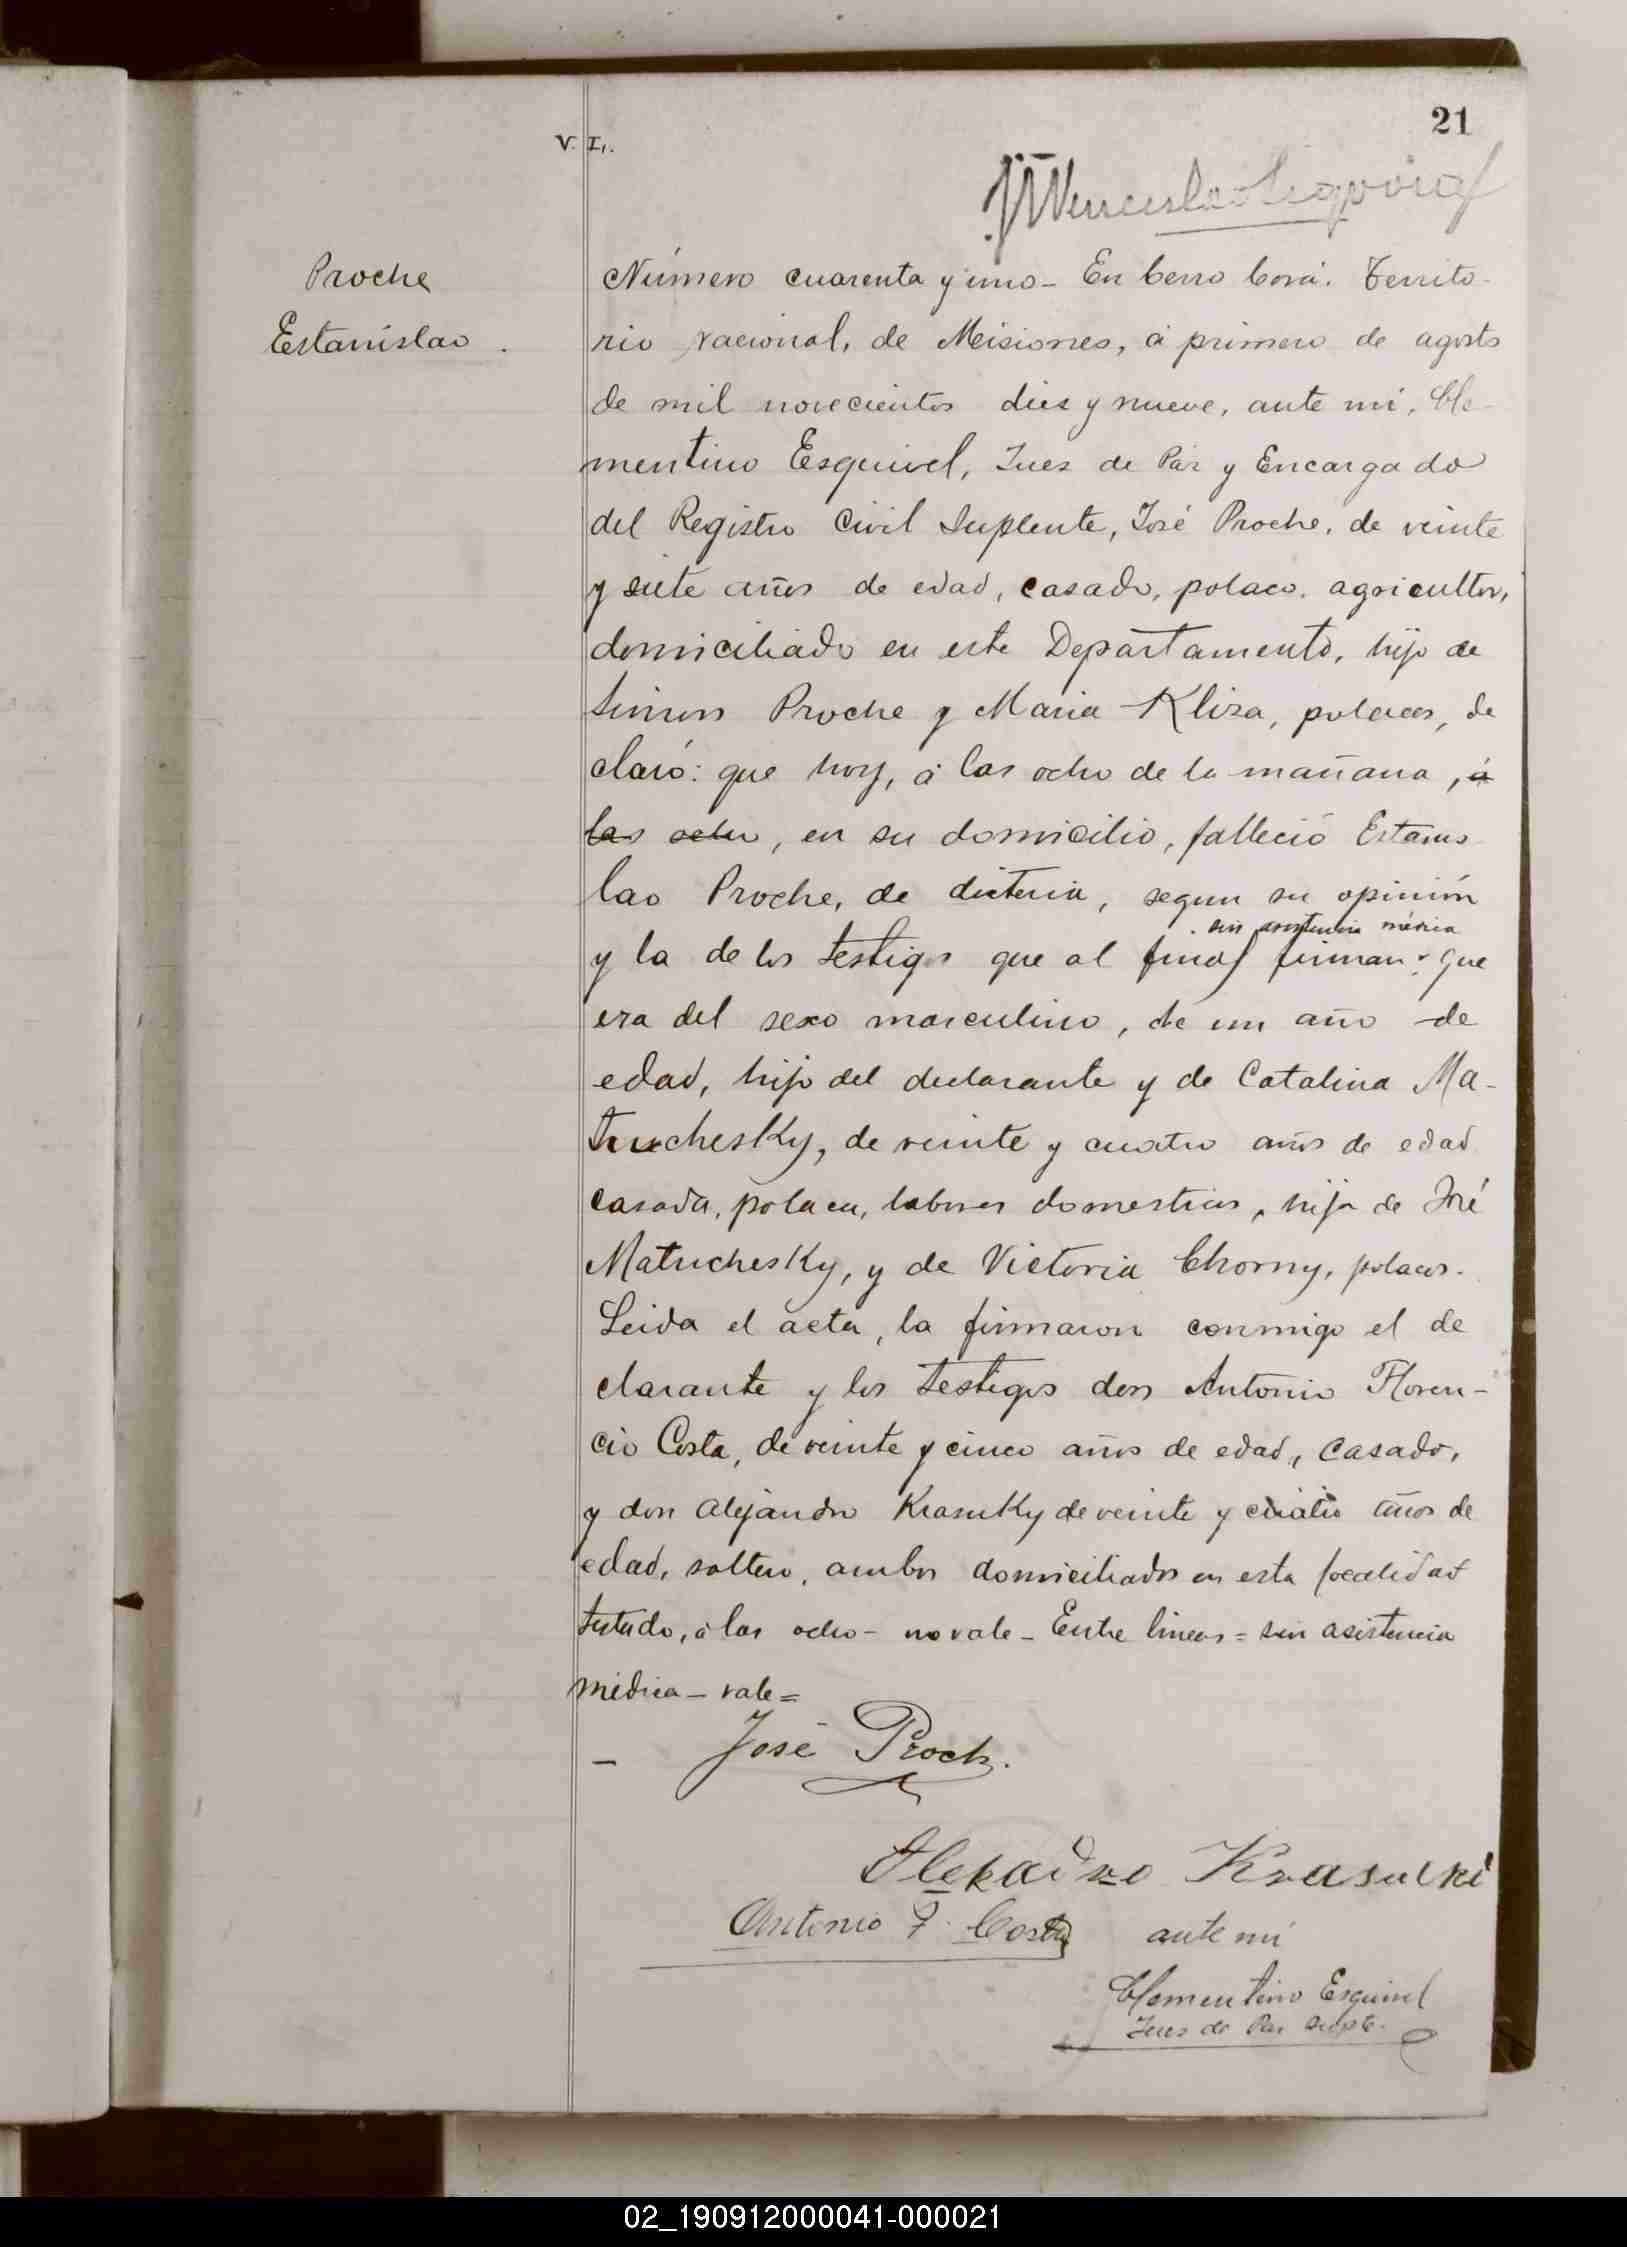 21
V. I.
Wenceslao
Proche
Estanislao.
Número cuarenta y uno - En Cerro Corá. Territo-
rio nacional, de Misiones, á primero de agosto
de mil novecientos diez y nueve, ante mi, Cle-
mentino Esquivel, Juez de Paz y Encargado
del Registro Civil Suplente, José Proche, de veinte
y siete años de edad, casado, polaco, agricultor,
domiciliado en este Departamento, hijo de
Simon Proche y Maria Kliza, polacos, de
claró: que hoy, á las ocho de la mañana, á
las ocho, en su domicilio, falleció Estanis-
lao Proche, de dicteria, segun su opinión
sin asistencia médica
y la de los testigos que al final firman: que
era del sexo masculino, de un año de
edad, hijo del declarante y de Catalina Ma-
truchesky, de veinte y cuatro años de edad
casada, polaca, labores domesticas, hija de José
Matruchesky, y de Victoria Chorny, polacos.
Leida el acta, la firmaron conmigo el de
clarante y los testigos don Antonio Floren-
cio Costa, de veinte y cinco años de edad, casado,
y don Alejandro Krasuky de veinte y cuatro años de
edad, soltero, ambos domiciliados en esta localidad
testado, á las ocho - no vale - Entre lineas = sin asistencia
médica - vale =
- José Proch.
Alekadro Krasucki
Antonio F. Costa ante mi
Clementino Esquivel
Juez de Paz Suplte.
02_190912000041-000021